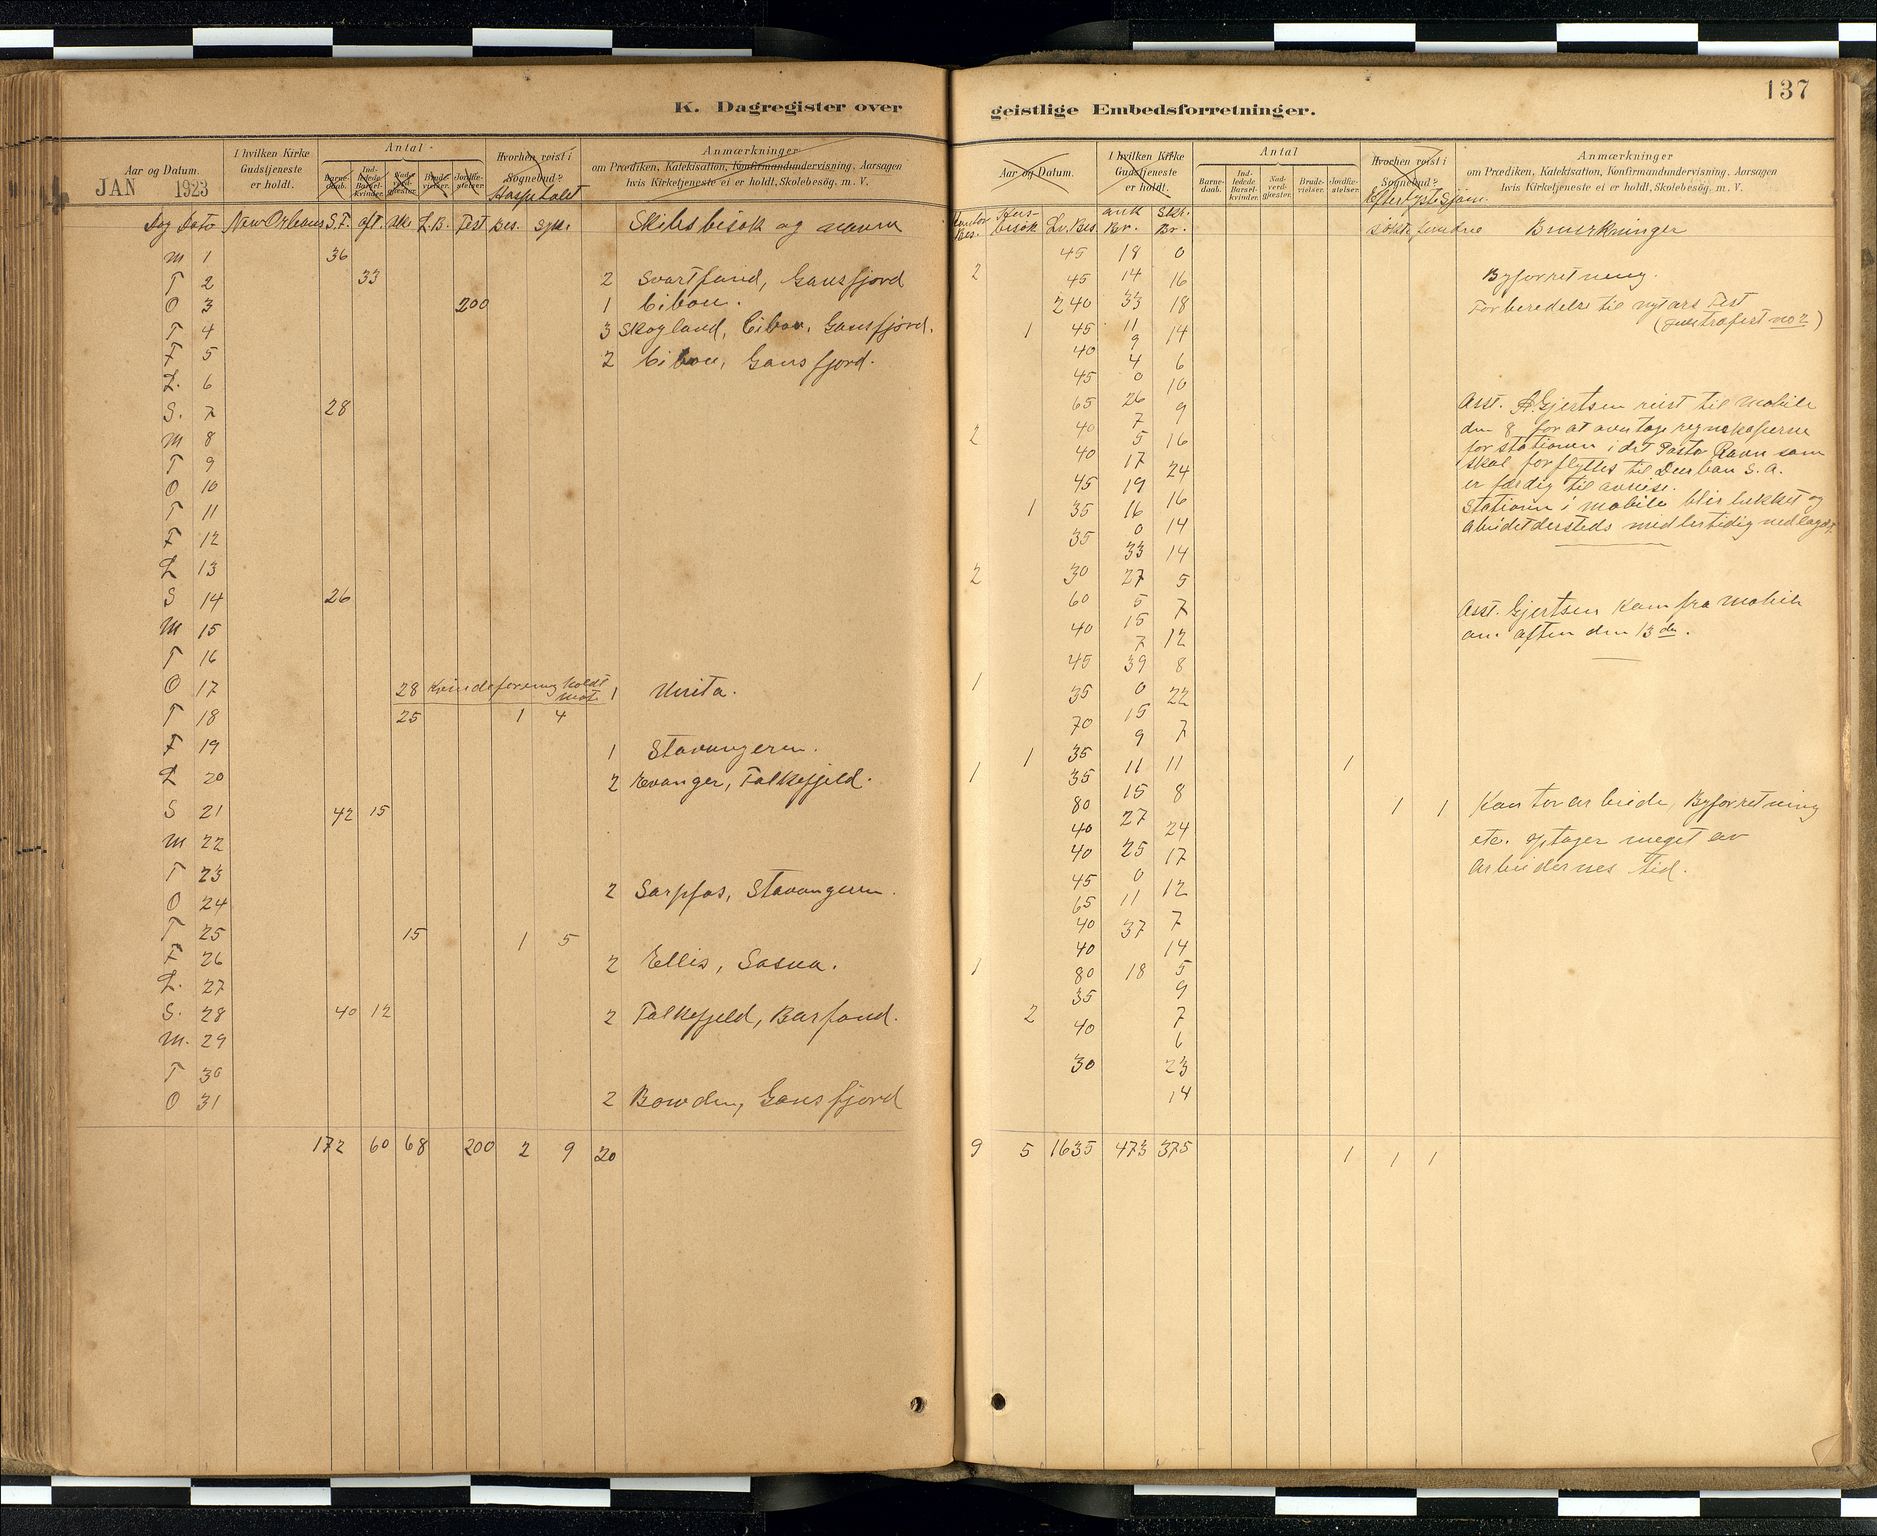 K. Dagregister over
Aar og Datum.
JAN 1923
I hvilken Kirke Gudstjeneste er holdt.
Antal
Barnedaab.
Indledede Barselkvinder.
Nadverdgjæster.
Brudevielser.
Jordfæstelser.
Hvorhen reist i Sognebud?
Hospitalet
Anmærkninger
om Prædiken, Katekisation, Konfirmandundervisning, Aarsagen
hvis Kirketjeneste ei er holdt, Skolebesøg, m. V.
Dag Dato New Orleans S.F. aft. Uke L.B. Fest Bes. syke Skibsbesøk og navn
M 1 36
T 2 33 2 Svartfond, Gansfjord
O 3 200 1 Cibou.
T 4 3 Skogland, Cibou, Gansfjord.
F 5 2 Cibou, Gansfjord.
L. 6
S. 7 28
M 8
T 9
O 10
T 11
F 12
L 13
S 14 26
M 15
T 16
O 17 28 Kvindeforening holdt møt. 1 Unita.
T 18 25 1 4
F 19 1 Stavangeren.
L 20 2 Evanger, Falkefjeld.
S 21 42 15
M 22
T 23
O 24 2 Sarpfos, Stavangeren.
T 25 15 1 5
F 26 2 Ellis, Sosua.
L. 27
S. 28 40 12 2 Falkefjeld, Barfond.
M. 29
T 30
O 31 2 Bowden, Gansfjord
172 60 68 200 2 9 20
137
geistlige Embedsforretninger.
Aar og Datum.
I hvilken Kirke Gudstjeneste er holdt.
Antal
Barnedaab.
Indledede Barselkvinder.
Nadverdgjæster.
Brudevielser.
Jordfæstelser.
Hvorhen reist i Sognebud?
Efterlyste Sjøm.
Anmærkninger
om Prædiken, Katekisation, Konfirmandundervisning, Aarsagen
hvis Kirketjeneste ei er holdt, Skolebesøg, m. V.
Kontor Bes. Husbesøk Lv. Bes ank Br. Skr. Br. søkte fundne Bemerkninger
45 18 0
2 45 14 16 Byforretning.
240 33 18 Forberedelse til nytårs Fest
1 45 11 14 (juletrefest no 2)
40 9
4 6
45 0 10
65 26 9 Asst. Gjertsen reist til Mobile
40 7 den 8 for at overtage regnskaperne
2 5 16 for stationen i det Pastor Ravn som
40 17 24 skal forflyttes til Durban S. A.
45 19 er færdig til avreise.
1 35 16 16 Stationen i Mobile blir lukket og
35 0 14 Arbeidet dersteds midlertidig nedlagdt.
33 14
2 30 27 5
60 5 7 Asst. Gjertsen kom fra Mobile
40 15 12 om aften den 13 de.
7
45 39 8
1 35 0 22
70 15 7
9
1 35 11 11 1
1 35 15 8
80 27 1 1 Kontorarbeide, Byforretning
40 24
40 25 17 etc. optager meget av
45 0 12 Arbeidernes tid.
65 11
40 37 7
40 14
1 80 18 5
35 9
2 40 7
6
30 23
14
9 5 1635 473 375 1 1 1